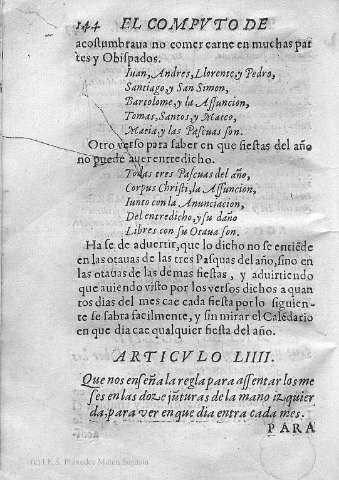 144 EL COMPVTO DE
acostumbraua no comer carne en muchas par
tes y Obispados.
Iuan, Andres, Llorente, y Pedro,
Santiago, y San Simon,
Bartolome, y la Assuncion,
Tomas, Santos, y Mateo,
Matia, y las Pascuas son.
Otro verso para saber en que fiestas del año
no puede auer entredicho.
Todas tres Pascuas del año,
Corpus Christi, la Assuncion,
Iunto con la Anunciacion,
Del entredicho, y su daño
Libres con su Otaua son.
Ha se de aduertir, que lo dicho no se entiēde
en las otauas de las tres Pasquas del año, sino en
las otauas de las demas fiestas, y aduirtiendo
que auiendo visto por los versos dichos a quan
tos dias del mes cae cada fiesta por lo siguien-
te se sabra facilmente, y sin mirar el Calēdario
en que dia cae qualquier fiesta del año.
ARTICVLO LIIII.
Que nos enseña la regla para assentar los me
ses en las doze jūturas de la mano izquier
da, para ver en que dia entra cada mes.
PARA
(c) I.E.S. Práxedes Mateo Sagasta